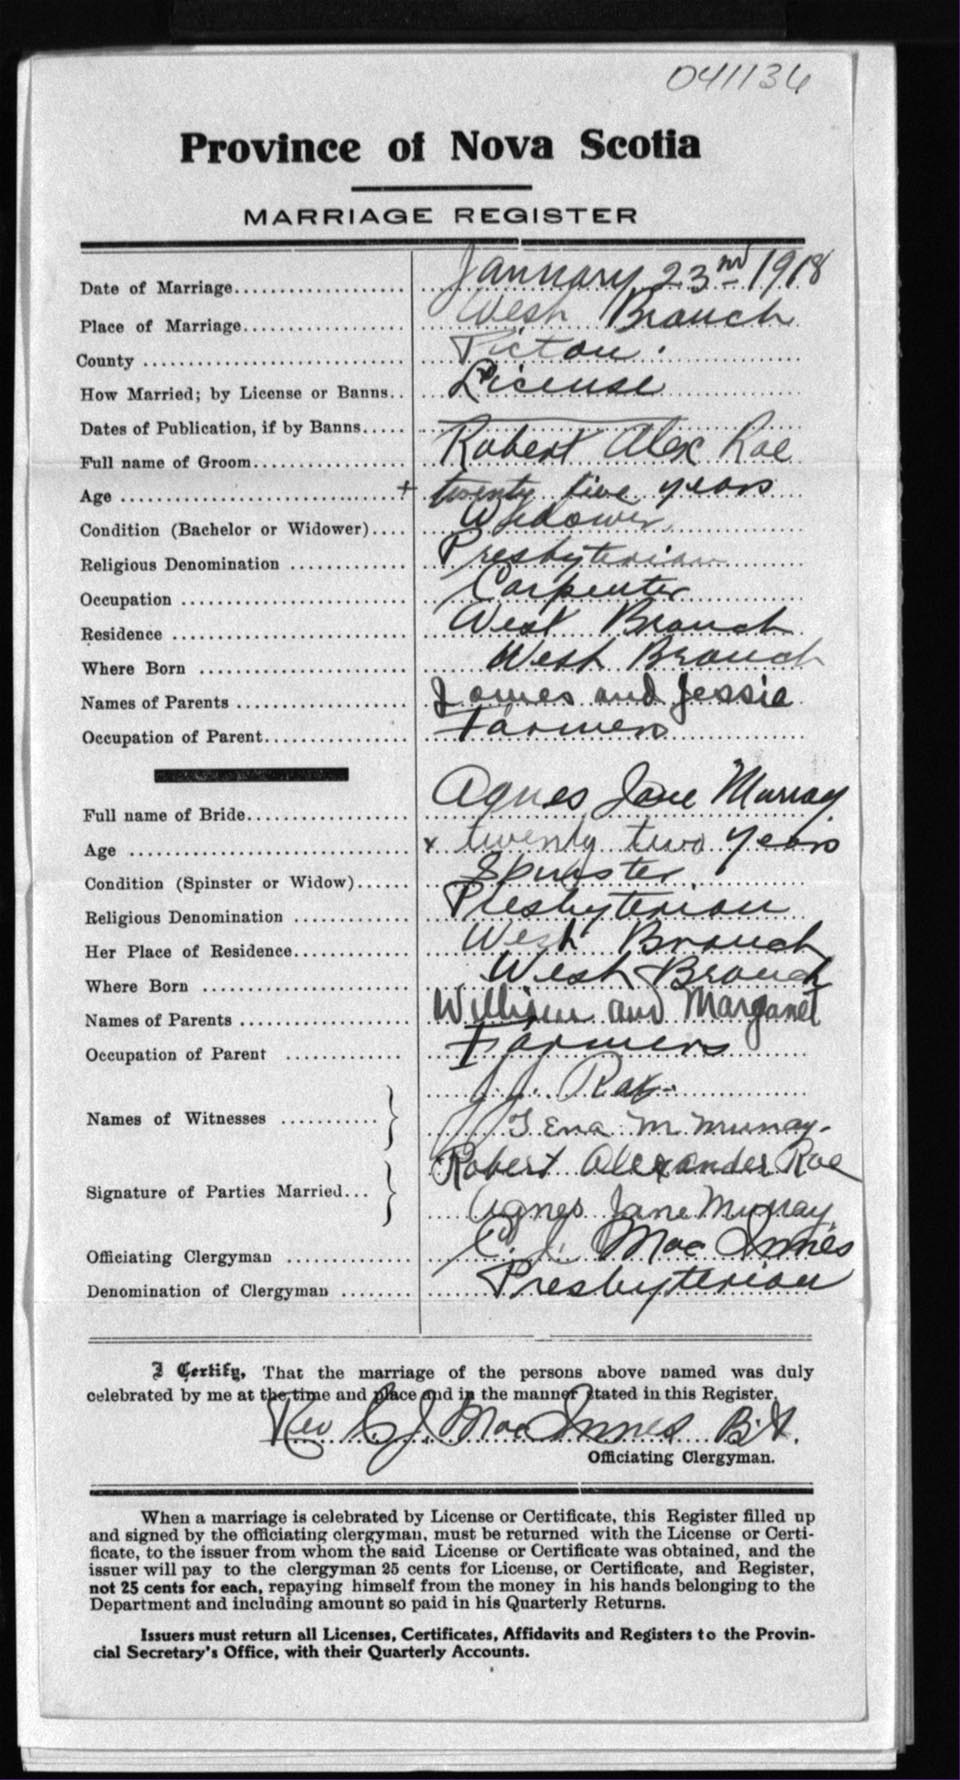 041136
Province of Nova Scotia
MARRIAGE REGISTER
Date of Marriage January 23nd 1918
Place of Marriage West Branch
County Pictou.
How Married; by License or Banns License
Dates of Publication, if by Banns
Full name of Groom Robert Alex Rae
Age + twenty five years
Condition (Bachelor or Widower) Widower
Religious Denomination Presbyterian
Occupation Carpenter
Residence West Branch
Where Born West Branch
Names of Parents James and Jessie
Occupation of Parent Farmers
Full name of Bride Agnes Jane Murray
Age x twenty two years
Condition (Spinster or Widow) Spinster
Religious Denomination Presbyterian
Her Place of Residence West Branch
Where Born West Branch
Names of Parents William and Margaret
Occupation of Parent Farmers
J. J. Rae
Names of Witnesses
Tena M Murray.
Robert Alexander Rae
Signature of Parties Married
Agnes Jane Murray
Officiating Clergyman C. J. MacInnes
Denomination of Clergyman Presbyterian
I Certify, That the marriage of the persons above named was duly
celebrated by me at the time and place and in the manner stated in this Register.
Rev C J. MacInnes B.A.
Officiating Clergyman.
When a marriage is celebrated by License or Certificate, this Register filled up
and signed by the officiating clergyman, must be returned with the License or Certi-
ficate, to the issuer from whom the said License or Certificate was obtained, and the
issuer will pay to the clergyman 25 cents for License, or Certificate, and Register,
not 25 cents for each, repaying himself from the money in his hands belonging to the
Department and including amount so paid in his Quarterly Returns.
Issuers must return all Licenses, Certificates, Affidavits and Registers to the Provin-
cial Secretary's Office, with their Quarterly Accounts.